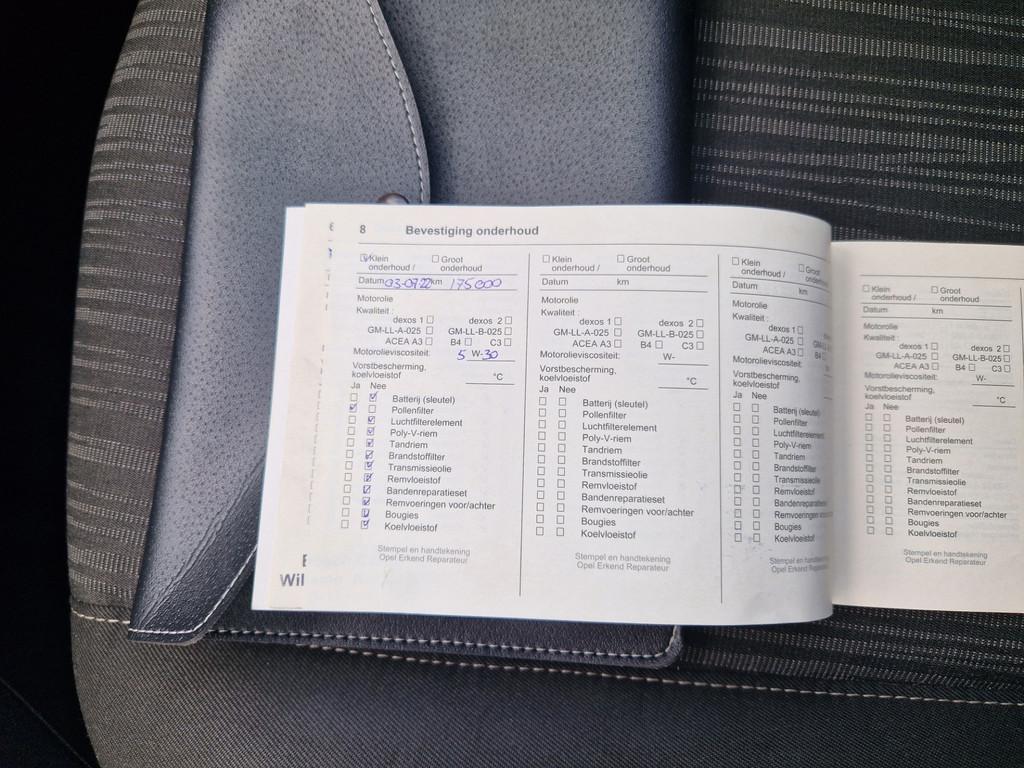 8 Bevestiging onderhoud
Klein onderhoud / Groot onderhoud
Datum 03-07-22 km 175000
Motorolie
Kwaliteit :
dexos 1 dexos 2
GM-LL-A-025 GM-LL-B-025
ACEA A3 B4 C3
Motorolieviscositeit: 5 W-30
Vorstbescherming,
koelvloeistof °C
Ja Nee
Batterij (sleutel)
Pollenfilter
Luchtfilterelement
Poly-V-riem
Tandriem
Brandstoffilter
Transmissieolie
Remvloeistof
Bandenreparatieset
Remvoeringen voor/achter
Bougies
Koelvloeistof
Stempel en handtekening
Opel Erkend Reparateur
Wil
Klein onderhoud / Groot onderhoud
Datum km
Motorolie
Kwaliteit :
dexos 1 dexos 2
GM-LL-A-025 GM-LL-B-025
ACEA A3 B4 C3
Motorolieviscositeit: W-
Vorstbescherming,
koelvloeistof °C
Ja Nee
Batterij (sleutel)
Pollenfilter
Luchtfilterelement
Poly-V-riem
Tandriem
Brandstoffilter
Transmissieolie
Remvloeistof
Bandenreparatieset
Remvoeringen voor/achter
Bougies
Koelvloeistof
Stempel en handtekening
Opel Erkend Reparateur
Klein onderhoud / Groot onderhoud
Datum km
Motorolie
Kwaliteit :
dexos 1
GM-LL-A-025 GM-
ACEA A3 B4
Motorolieviscositeit:
Vorstbescherming,
koelvloeistof
Ja Nee
Batterij (sleutel)
Pollenfilter
Luchtfilterelement
Poly-V-riem
Tandriem
Brandstoffilter
Transmissieolie
Remvloeistof
Bandenreparaties
Remvoeringen voo
Bougies
Koelvloeistof
Stempel en handteken
Opel Erkend Reparateur
Klein onderhoud / Groot onderhoud
Datum km
Motorolie
Kwaliteit:
dexos 1 dexos 2
GM-LL-A-025 GM-LL-B-025
ACEA A3 B4 C3
Motorolieviscositeit: W-
Vorstbescherming,
koelvloeistof °C
Ja Nee
Batterij (sleutel)
Pollenfilter
Luchtfilterelement
Poly-V-riem
Tandriem
Brandstoffilter
Transmissieolie
Remvloeistof
Bandenreparatieset
Remvoeringen voor/achter
Bougies
Koelvloeistof
Stempel en handtekening
Opel Erkend Reparateur